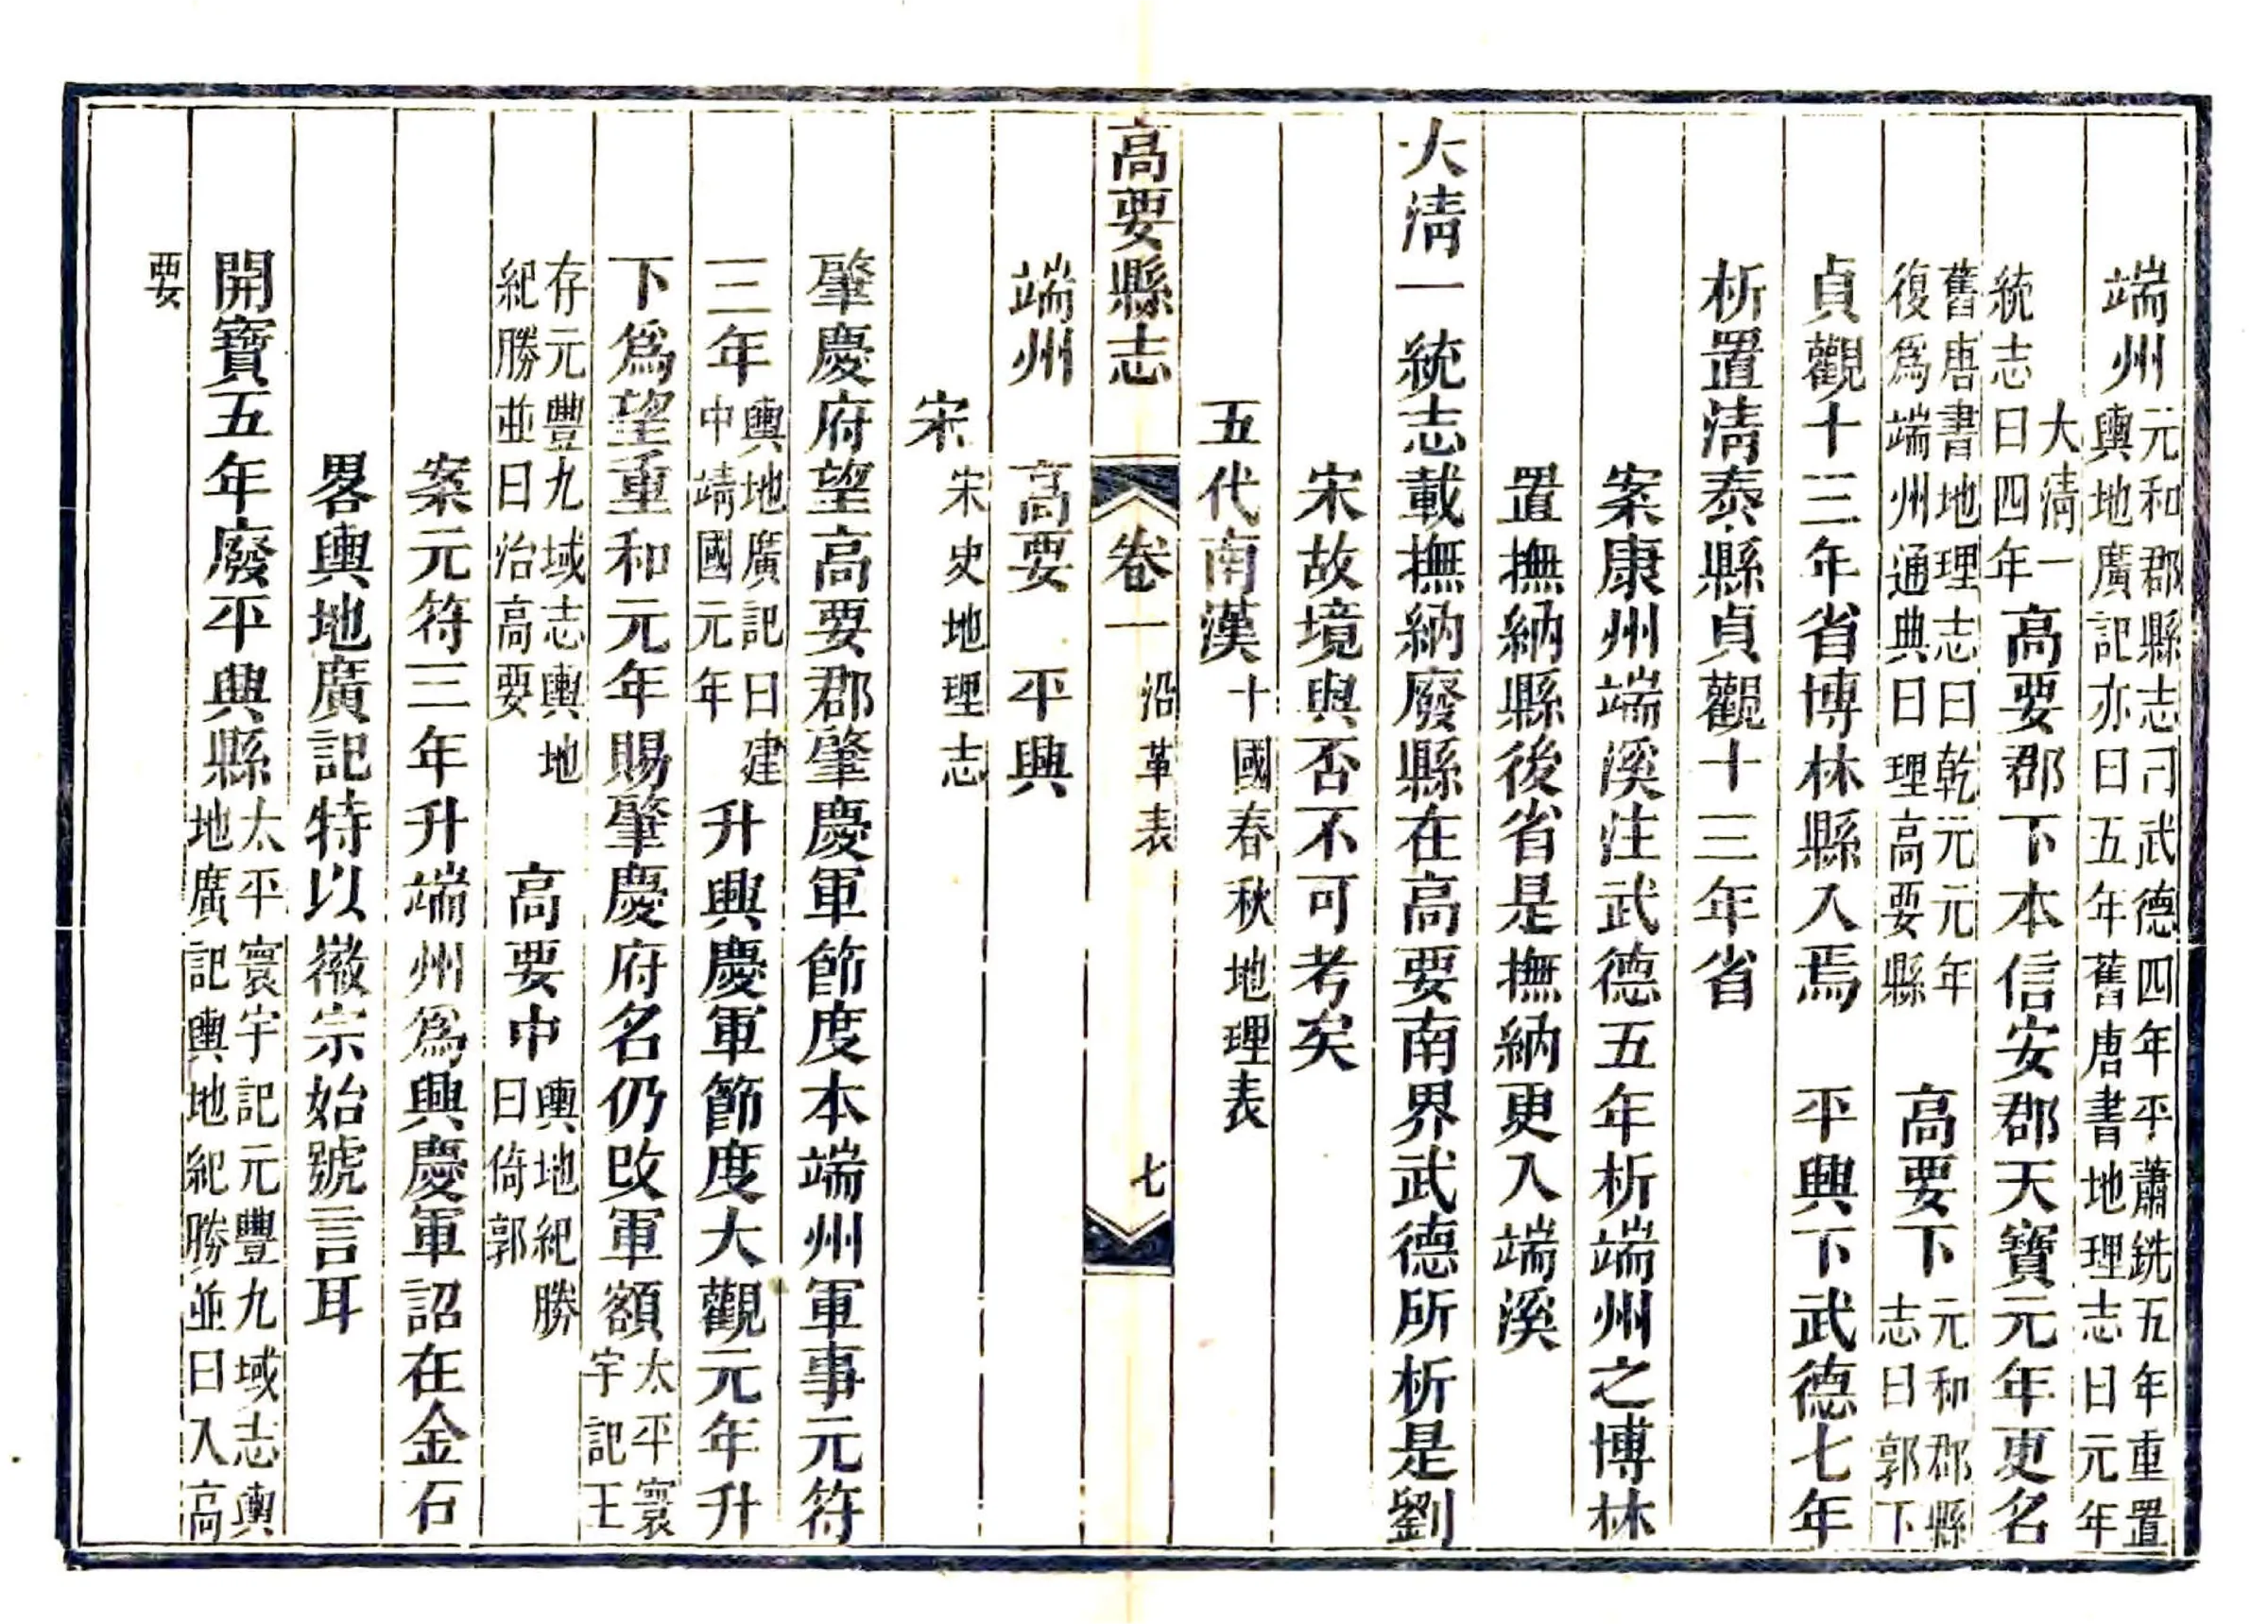 端州元和郡縣志曰武德四年平蕭銑五年重置輿地廣記亦曰五年舊唐書地理志曰元年
大清一統志曰四年高要郡下本信安郡天寶元年更名
舊唐書地理志曰乾元元年復爲端州通典曰理高要縣 高要下元和郡縣志曰郭下
貞觀十三年省博林縣入焉 平興下武德七年
析置清泰縣貞觀十三年省
案康州端溪注武德五年析端州之博林
置撫納縣後省是撫納更入端溪
大清一統志載撫納廢縣在高要南界武德所析是劉
宋故境與否不可考矣
五代南漢十國春秋地理表
高要縣志 卷一 沿革表 七
端州 高要 平興
宋 宋史地理志
肇慶府望高要郡肇慶軍節度本端州軍事元符
三年輿地廣記曰建中靖國元年升興慶軍節度大觀元年升
下爲望重和元年賜肇慶府名仍改軍額太平寰宇記王
存元豐九域志輿地紀勝並曰治高要 高要中輿地紀勝曰倚郭
案元符三年升端州爲興慶軍詔在金石
畧輿地廣記特以徽宗始號言耳
開寶五年廢平興縣太平寰宇記元豐九域志輿地廣記輿地紀勝並曰入高
要